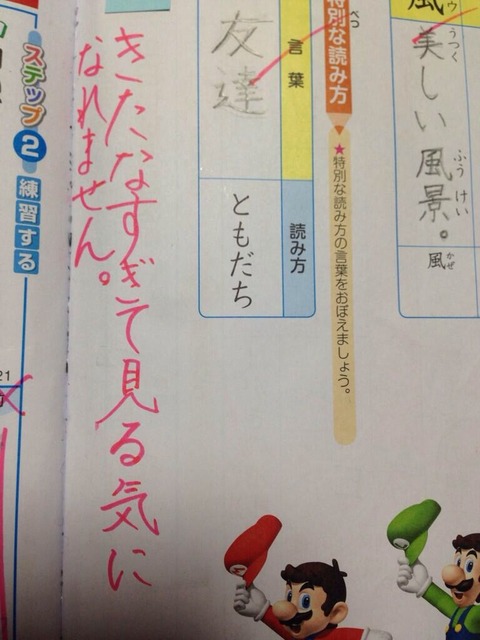 風
フウ
美しい風景。
うつく
ふうけい
風
かぜ
特別な読み方
べつ
★特別な読み方の言葉をおぼえましょう。
言葉
友達
読み方
ともだち
きたなすぎて見る気に
なれません。
ステップ2
練習する
21